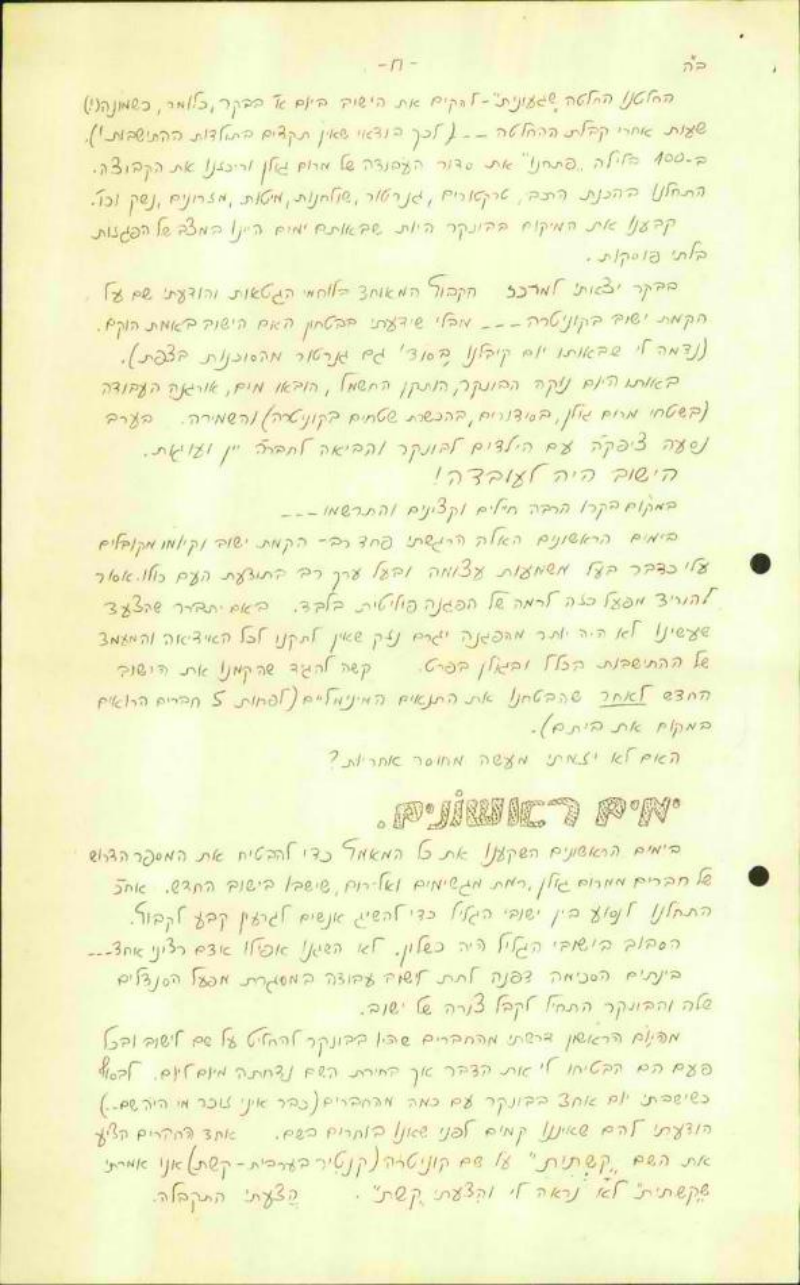 ב"ה
- ח -
החלטנו החלטה "שגעונית" - להקים את הישוב ביום א' בבקר, כלומר, כשמונה(!)
שעות אחרי קבלת ההחלטה --- (לכך בודאי שאין תקדים בתולדות ההתישבות!).
ב-100 בלילה "פתחנו" את סדור העבודה של מרום גולן וריכזנו את הקבוצה.
התחלנו בהכנת הרכב, טרקטורים, גנרטור, שולחנות, מיטות, מזרונים, נשק וכו'.
קבענו את המיקום בבונקר היות שבאותם ימים היינו במצב של הפגזות
בלתי פוסקות.
בבקר יצאתי למרכז הקבוץ המאוחד בלוחמי הגטאות והודעתי שם על
הקמת ישוב בקוניטרה --- מבלי שידעתי בבטחון האם הישוב באמת הוקם.
(נדמה לי שבאותו יום קיבלנו "בסוד" גם גנרטור מהסוכנות בצפת).
באותו היום נוקה הבונקר, הותקן החשמל, הובאו מים, אורגנה העבודה
(בשטחי מרום גולן, בסידורים, בהכשרת שטחים בקוניטרה) והשמירה. בערב
נסעה ציפק'ה עם הילדים לבונקר והביאה לחבר'ה יין ועוגות.
הישוב היה לעובדה!
במקום בקרו הרבה חילים וקצינים והתרשמו ---
בימים הראשונים האלה הרגשתי פחד רב - הקמת ישוב וקיומו מקובלים
עלי כדבר בעל משמעות עצומה ובעל ערך רב בתודעת העם כולו. אסור
להוריד מפעל כזה לרמה של הפגנה פוליטית בלבד. באם יתברר שהצעד
שעשינו לא היה יותר מהפגנה יגרם נזק שאין לתקנו לכל האידיאה והמעמד
של ההתישבות בכלל ובגולן בפרט. קשה להגד שהקמנו את הישוב
החדש לאחר שהבטחנו את התנאים המינימליים (לפחות 5 חברים הרואים
במקום את ביתם).
האם לא יזמתי מעשה מחוסר אחריות?
ימים ראשונים.
בימים הראשונים השקענו את כל המאמץ כדי להבטיח את המספר הדרוש
של חברים ממרום גולן, רמת מגשימים ואלירום, שישבו בישוב החדש. אח"כ
התחלנו לנסוע בין ישובי הגליל כדי להשיג אנשים לגרעין קבע לקבוץ.
הסבוב בישובי הגליל היה כשלון. לא השגנו אפילו אדם רציני אחד ---
בינתים הסכימה דפנה לתת לישוב עבודה במסגרת מפעל הסנדלים
שלה והבונקר התחיל לקבל צורה של ישוב.
מהיום הראשון דרשתי מהחברים שהיו בבונקר להחליט על שם לישוב ובכל
פעם הם הבטיחו לי את הדבר אך בחירת השם נדחתה מיום ליום. לבסוף
כשישבתי יום אחד בבונקר עם כמה מהחברים (כבר איני זוכר מי היה שם..)
הודעתי להם שאיננו קמים לפני שאנו בוחרים בשם. אחד החברים הציע
את השם "קשתית" על שם קוניטרה (קנטיר בערבית - קשת) אני אמרתי
ש"קשתית" לא נראה לי והצעתי "קשת". הצעתי התקבלה.